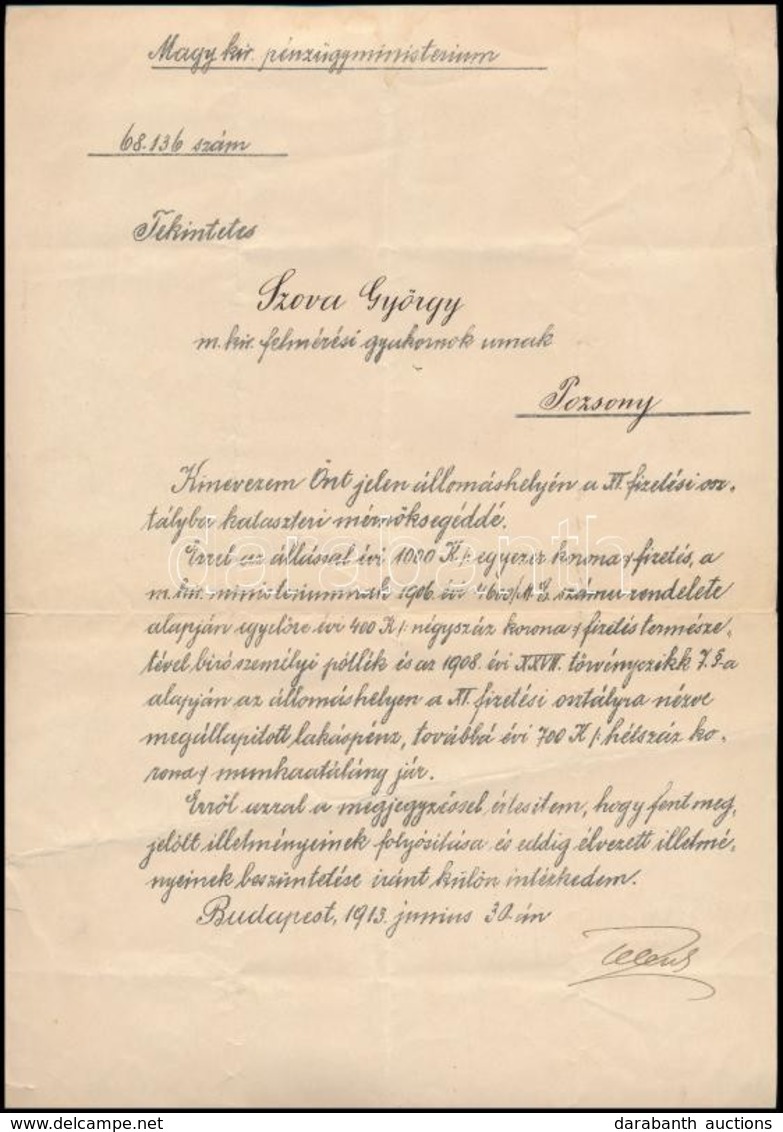 Magy kir. pénzügyministerium
68.136 szám
Tekintetes
Szova György
m. kir. felmérési gyakornok urnak
Pozsony
Kinevezem Önt jelen állomáshelyén a XI fizetési osz-
tályba kataszteri mérnöksegéddé.
Ezzel az állással évi 1000 K /: egyezer korona :/ fizetés, a
m. kir. ministeriumnak 1906. évi 4600/M.E. számu rendelete
alapján egyelőre évi 400 K /: négyszáz korona :/ fizetés természe-
tével biró személyi pótlék és az 1908. évi XXVII. törvényczikk 7. §-a
alapján az állomáshelyen a XI fizetési osztályra nézve
megállapitott lakáspénz, továbbá évi 700 K /: hétszáz ko-
rona :/ munkaátalány jár.
Erről azzal a megjegyzéssel értesitem, hogy fent meg-
jelölt illetményeinek folyósitása és eddig élvezett illetmé-
nyeinek beszüntetése iránt külön intézkedem.
Budapest, 1913. junius 30-án
darabanth
darabanth auctions